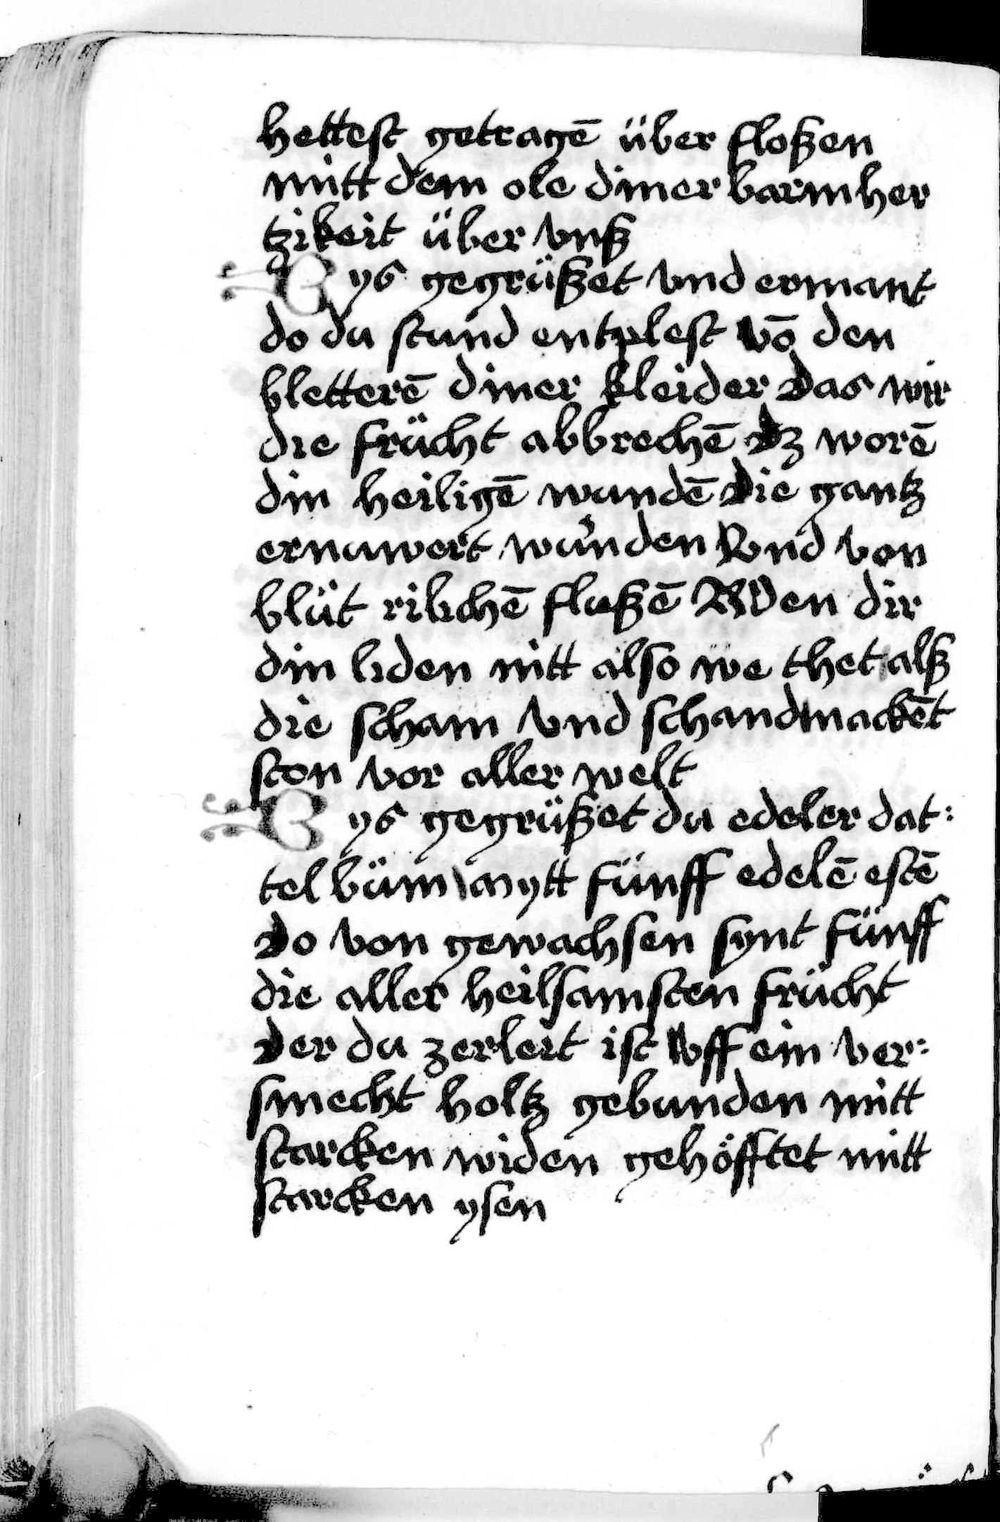 hettest getragē über floßen
mitt dem ole diner barmher
tzikeit über vnß
Bys gegrüßet vnd ermant
do du stund entplest vō den
bletterē diner kleider Das wir
die frücht abbrechē Dz worē
din heiligē wundē Die gantz
ernuwert wůnden Vnd von
blüt rilichē flußē Wen dir
din liden nitt also we thet alß
die scham vnd schand nackēt
ston vor aller welt
Bys gegrüßet du edeler dat:
tel büm mytt fünff edelē estē
Do von gewachsen synt fünff
die aller heilsamsten frücht
Der du zerleit ist vff ein ver:
smecht holtz gebunden mitt
starcken widen gehöfftet mitt
starcken ysen